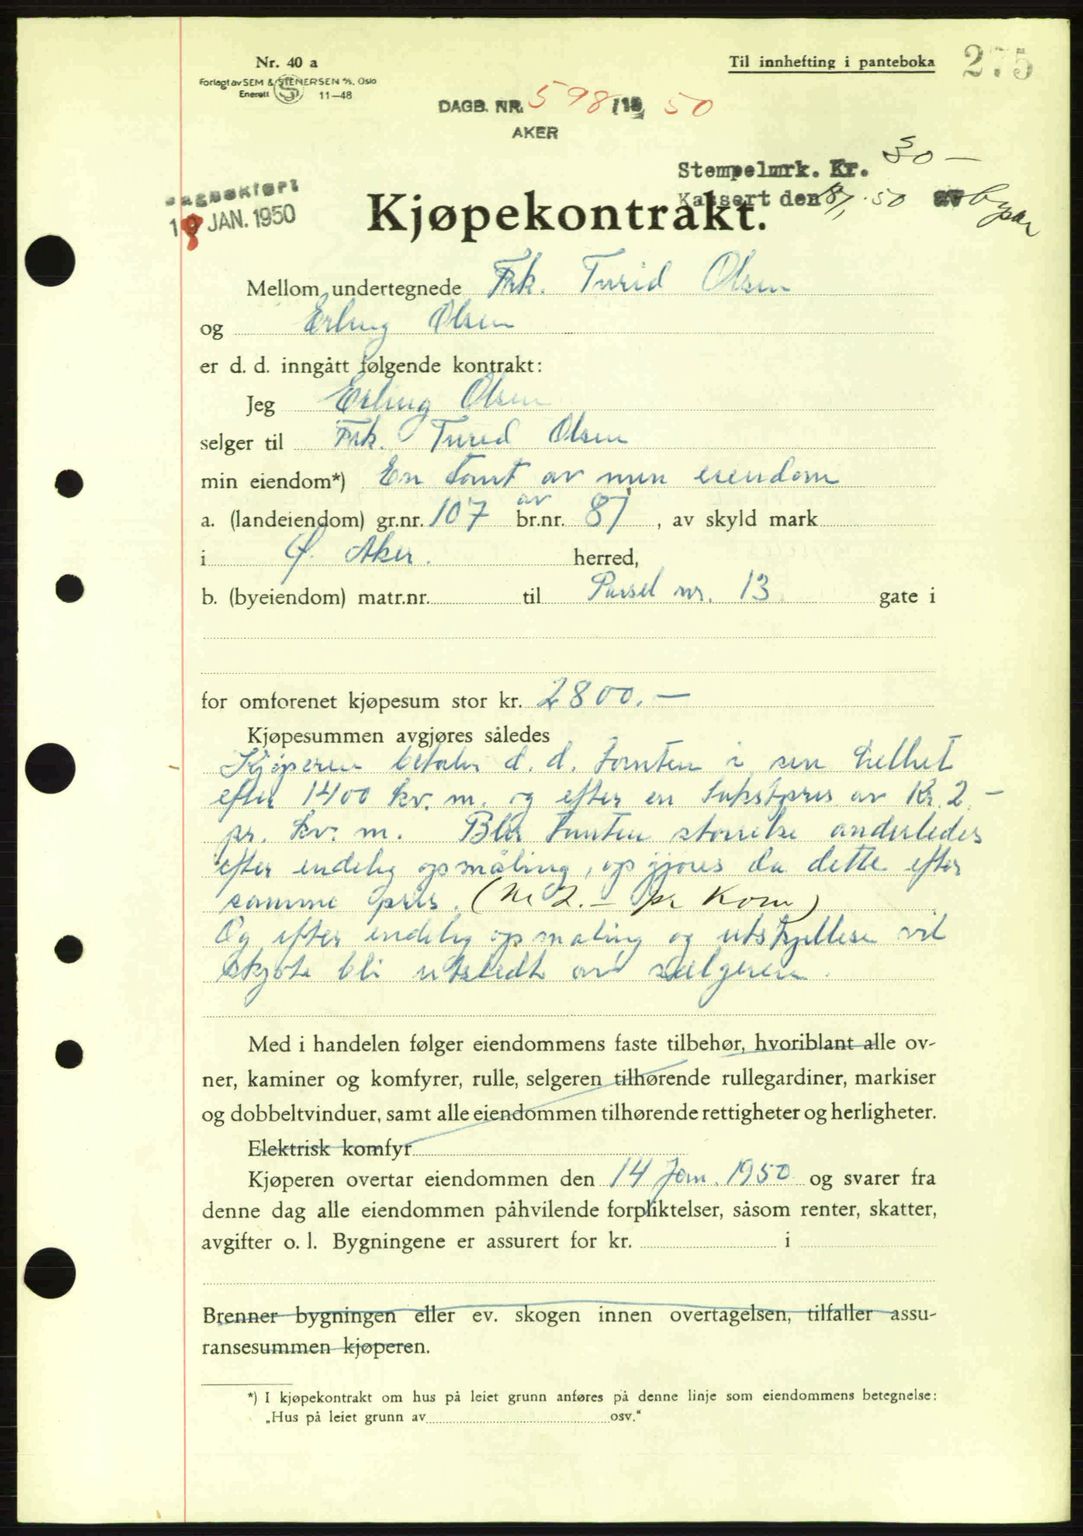 Nr. 40 a
Forlagt av SEM & STENERSEN A/S, Oslo
Enerett 11-48
Til innhefting i panteboka
275
DAGB. NR. 598/19 50
AKER
Stempelmrk. Kr. 30 —
Kassert den 18/1.50
Dagbokført
19 JAN. 1950
Kjøpekontrakt.
Mellom undertegnede Frk. Turid Olsen
og Erling Olsen
er d. d. inngått følgende kontrakt:
Jeg Erling Olsen
selger til Frk. Turid Olsen
min eiendom*) En tomt av min eiendom
a. (landeiendom) gr.nr. 107 av br.nr. 87, av skyld mark
i Ø. Aker. herred,
b. (byeiendom) matr.nr. til Parsel nr. 13 gate i
for omforenet kjøpesum stor kr. 2800.—
Kjøpesummen avgjøres således
Kjøperen betaler d. d. tomten i sin helhet
efter 1400 kv. m. og efter en takstpris av Kr. 2.—
pr. kv. m. Blir tomten størrelse anderledes
efter endelig opmåling, opgjøres da dette efter
samme pris. (Kr 2.— pr Kvm)
Og efter endelig opmåling og utskyllelse vil
skjøte bli utstedt av sælgeren.
Med i handelen følger eiendommens faste tilbehør, hvoriblant alle ov-
ner, kaminer og komfyrer, rulle, selgeren tilhørende rullegardiner, markiser
og dobbeltvinduer, samt alle eiendommen tilhørende rettigheter og herligheter.
Elektrisk komfyr
Kjøperen overtar eiendommen den 14 Jan. 1950 og svarer fra
denne dag alle eiendommen påhvilende forpliktelser, såsom renter, skatter,
avgifter o. l. Bygningene er assurert for kr. i
Brenner bygningen eller ev. skogen innen overtagelsen, tilfaller assu-
ransesummen kjøperen.
*) I kjøpekontrakt om hus på leiet grunn anføres på denne linje som eiendommens betegnelse:
„Hus på leiet grunn av osv."